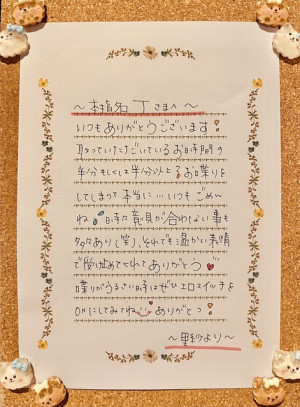 ～本指名 Tさまへ～
いつもありがとうございます!
取っていただいているお時間の
半分もしくは半分以上お喋りを
してしまって本当に…いつもごめん
ね 時々意見が合わない事も
多々あり(笑)、それでも温かい表情
で受け止めてくれてありがとう
喋りがうるさい時はぜひエロスイッチを
ONにしてみてね ありがとっ!
～里紗より～